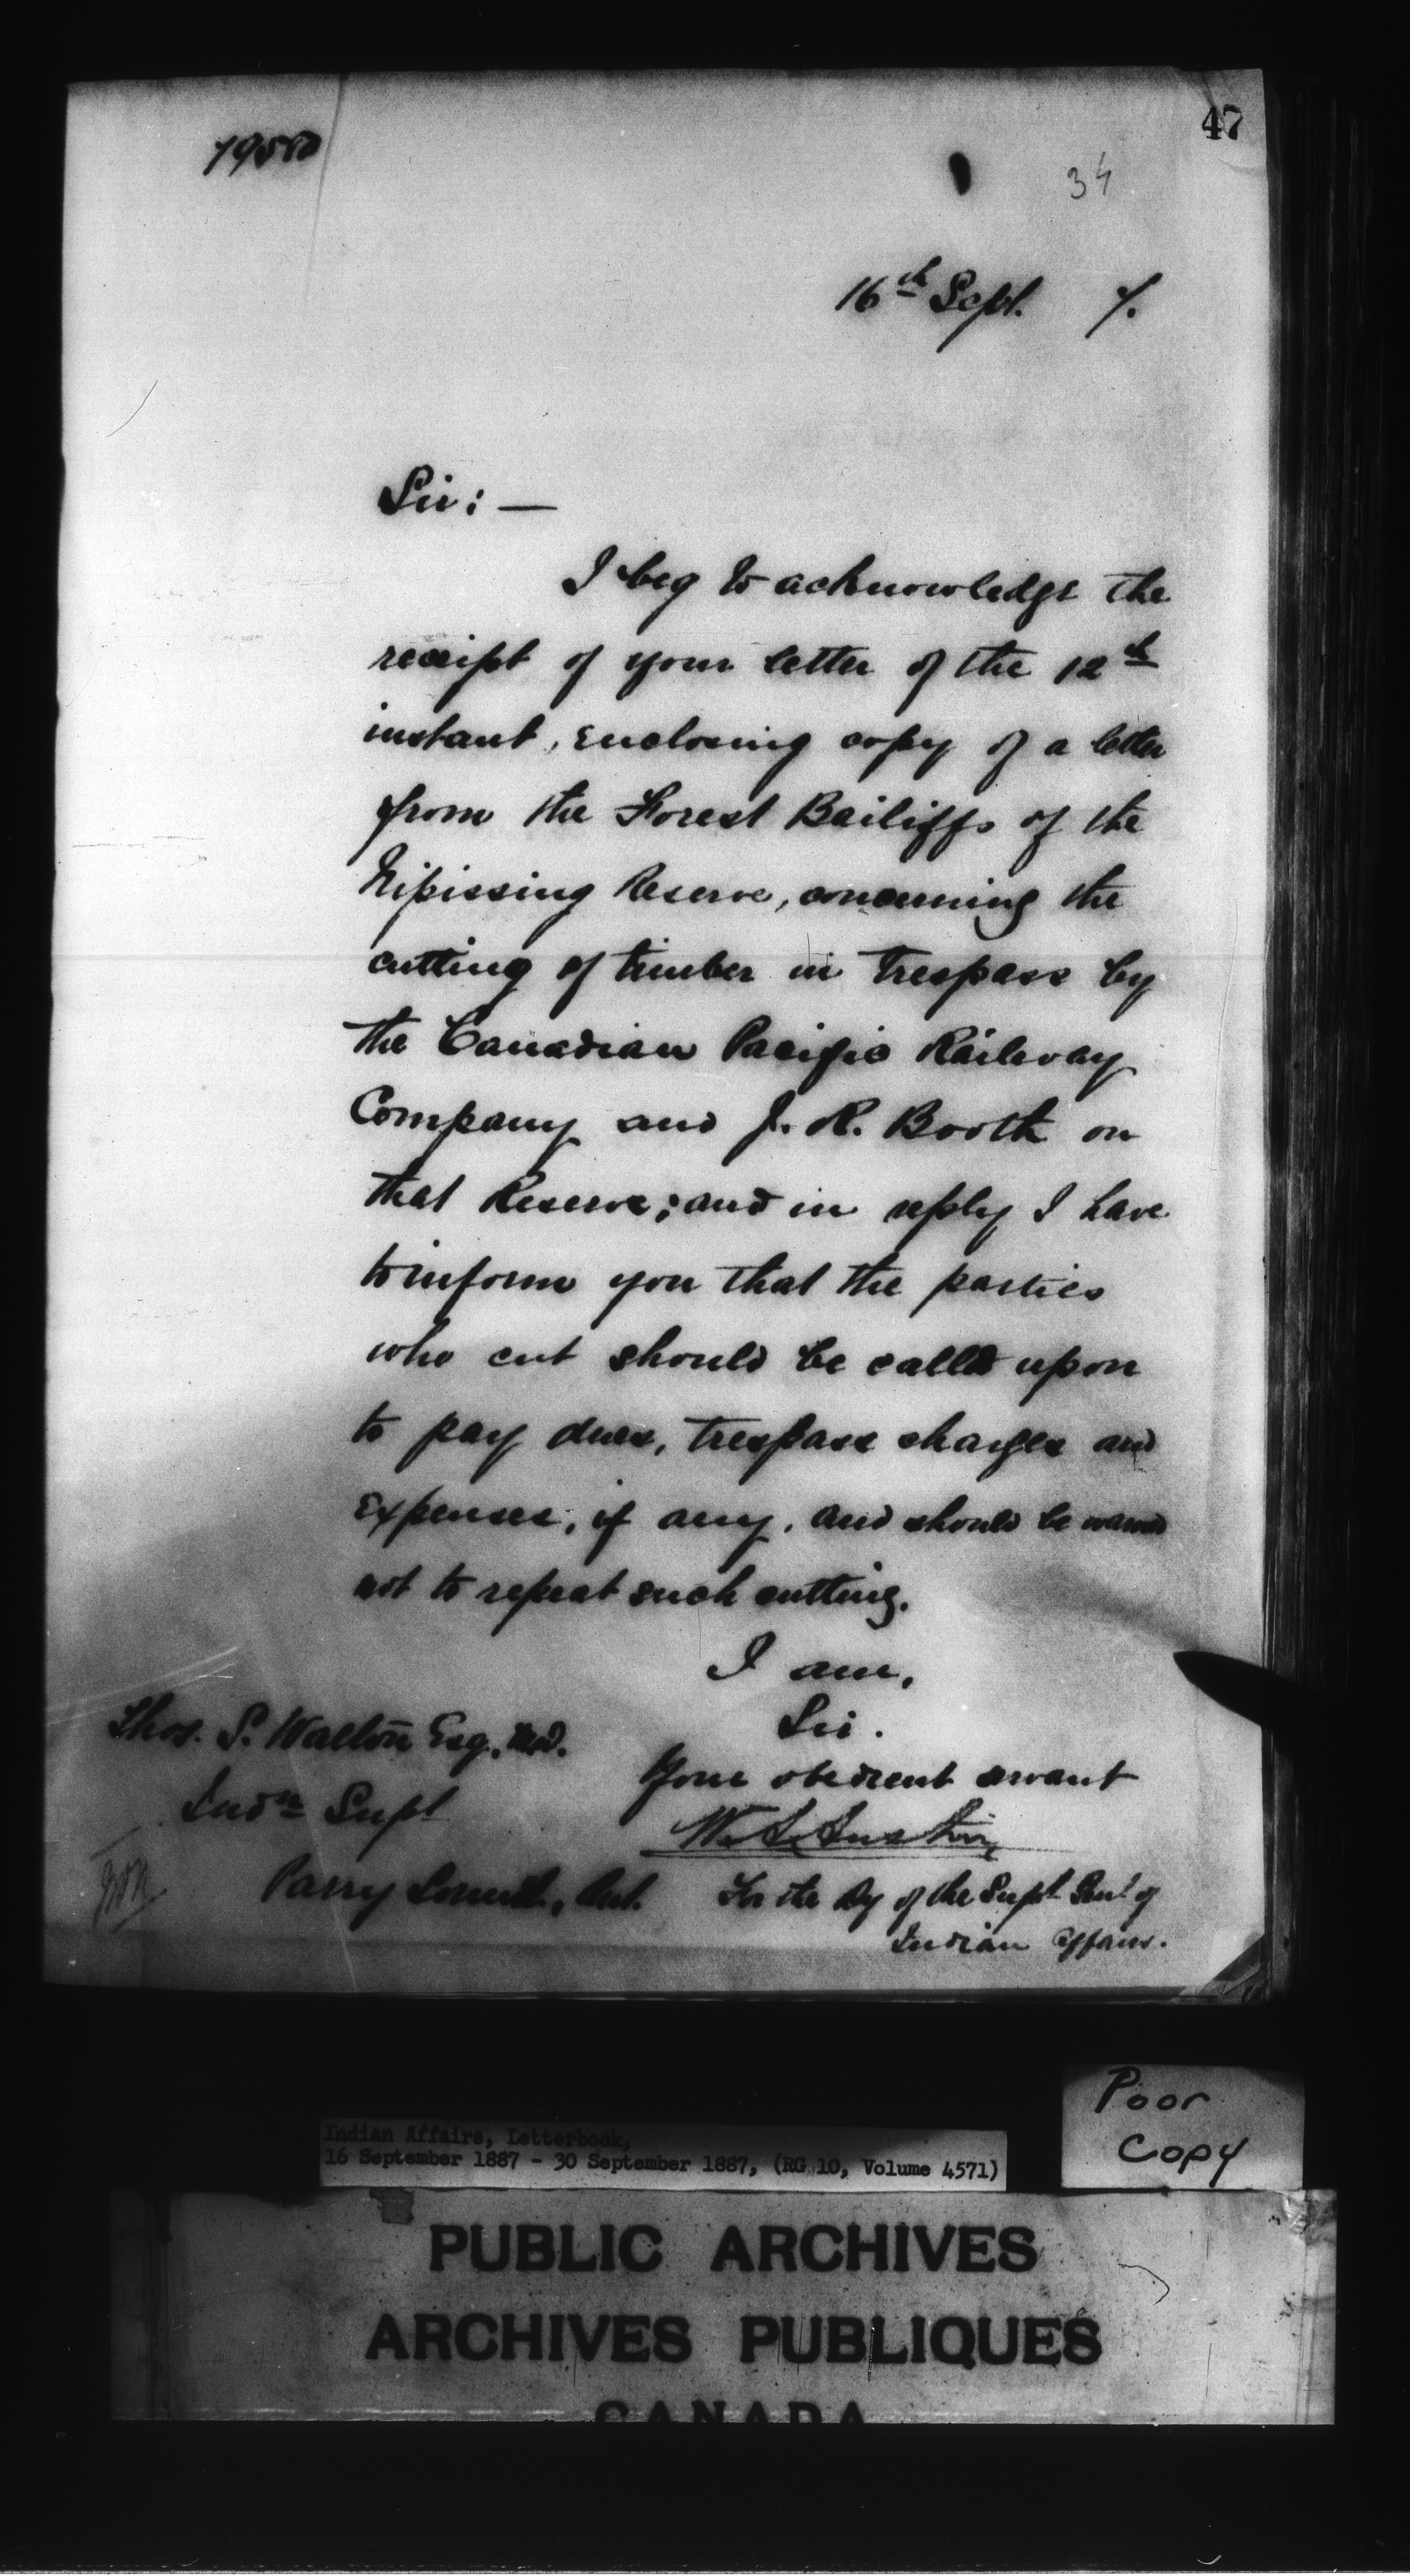 47
34
16th Sept. 7.
Sir: —
I beg to acknowledge the
receipt of your letter of the 12th
instant, enclosing copy of a letter
from the Forest Bailiffs of the
Nipissing Reserve, concerning the
cutting of timber in trespass by
the Canadian Pacific Railway
Company and J. R. Booth on
that Reserve; and in reply I have
to inform you that the parties
who cut should be called upon
to pay dues, trespass charges and
expenses, if any, and should be warned
not to repeat such cutting.
I am,
Sir.
Your obedient servant
Thos. S. Walton Esq. M.D.
Indn Supt
Parry Sound, Ont.
For the Dy of the Supt Genl of
Indian Affairs.
Poor
Copy
Indian Affairs, Letterbook,
16 September 1887 - 30 September 1887, (RG 10, Volume 4571)
PUBLIC ARCHIVES
ARCHIVES PUBLIQUES
CANADA